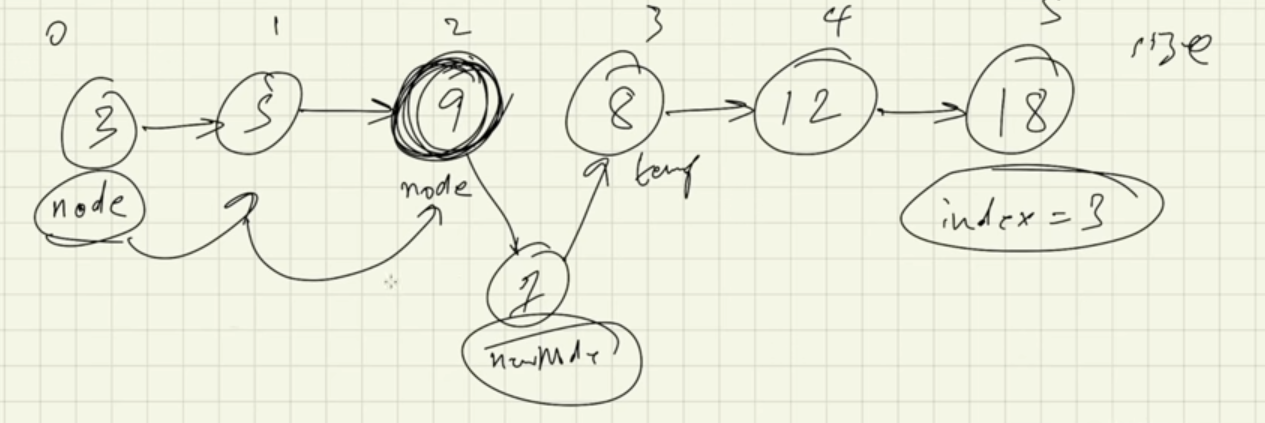 0 1 2 3 4 5 size
3 5 9 8 12 18
node node temp index = 3
7
newNode